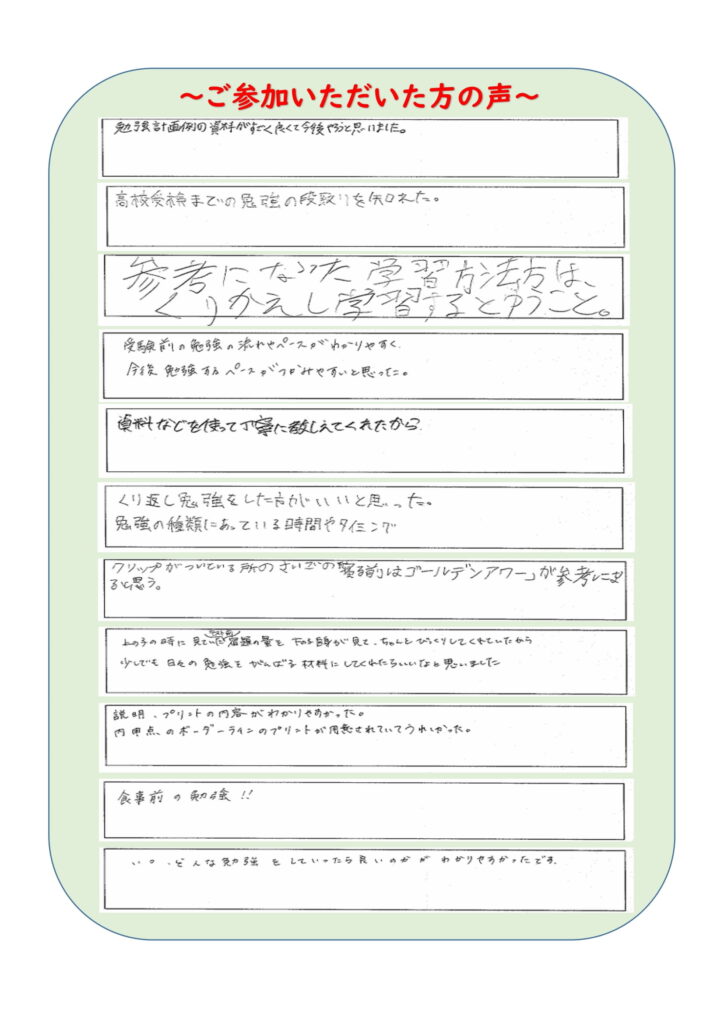 ～ご参加いただいた方の声～
勉強計画例の資料がすごく良くて今後やろうと思いました。
高校受検までの勉強の段取りを知れた。
参考になった学習方法方は、
くりかえし学習するとゆうこと。
受験前の勉強の流れやペースがわかりやすく、
今後勉強するペースがつかみやすいと思った。
資料などを使って丁寧に教しえてくれたから。
くり返し勉強をした方がいいと思った。
勉強の種類にあっている時間やタイミング
クリップがついている所のさいごの「寝る前はゴールデンアワー」が参考にな
ると思う。
上の子の時に見ていた宿題の量を下の子自身が見て、ちゃんとびっくりしてくれていたから
少しでも日々の勉強をがんばる材料にしてくれたらいいなと思いました
説明、プリントの内容がわかりやすかった。
内申点のボーダーラインのプリントが用意されていてうれしかった。
食事前の勉強!!
どんな勉強をしていったら良いのかがわかりやすかったです。